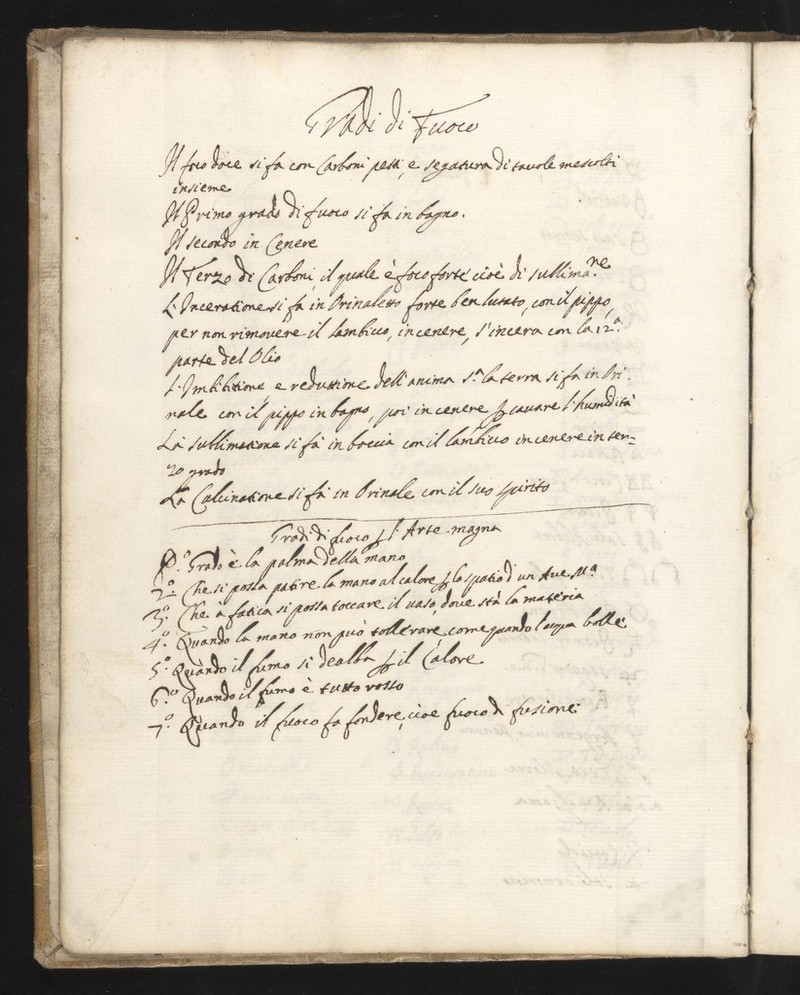 Gradi di Fuoco
Il foco dove si fa con Carboni pesti, e segatura di tavole mescolti
insieme
Il Primo grado di fuoco si fa in bagno.
Il secondo in Cenere
Il Terzo di Carboni, il quale è foco forte cioè di sullima.ne
L'Inceratione si fa in Orinaletto forte ben lutato, con il pippo,
per non rimovere il lambico, in cenere, s'incera con la 12.a
parte del Olio
L'Imbibitione e reduttione dell'anima s.a la terra si fa in Ori-
nale con il pippo in bagno, poi in cenere p cavare l'humidità
La sullimatione si fà in boccia con il lambico in cenere in ter=
zo grado
La Calcinatione si fà in Orinale con il suo spirito
Gradi di fuoco p l'Arte magna
P.o Grado è la palma della mano
2.o Che si possa patire la mano al calore p lo spatio d'un Ave M.a
3.o Che à fatica si possa toccare il vaso dove stà la materia
4.o Quando la mano non può tollerare come quando l'acqua bolle
5.o Quando il fumo si dealba p il Calore
6.o Quando il fumo è tutto rosso
7.o Quando il fuoco fa fondere, cioe fuoco di fusione